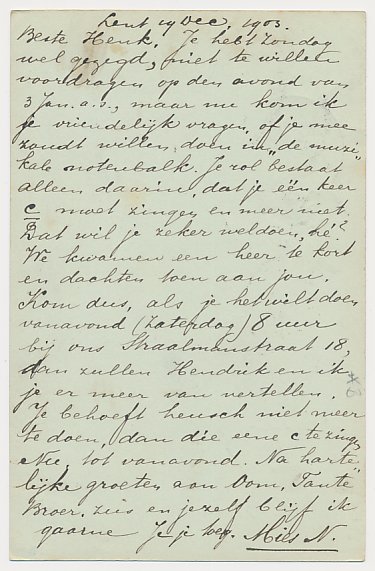 Lent 19 Dec. 1903.
Beste Henk. Je hebt Zondag
wel gezegd, niet te willen
voordragen op den avond van
3 Jan. a.s., maar nu kom ik
je vriendelijk vragen, of je mee
zoudt willen doen in "de muzi-
kale notenbalk. Je rol bestaat
alleen daarin, dat je één keer
c moet zingen en meer niet.
Dat wil je zeker wel doen, hé?
We kwamen een heer te kort
en dachten toen aan jou.
Kom dus, als je het wilt doen
vanavond (Zaterdag) 8 uur
bij ons Straalmanstraat 18,
dan zullen Hendrik en ik
je er meer van vertellen.
Je behoeft heusch niet meer
te doen, dan die eene c te zingen
Nu, tot vanavond. Na harte-
lijke groeten aan Oom, Tante
Broer, zus en jezelf blijf ik
gaarne Je je weg. Mies N.